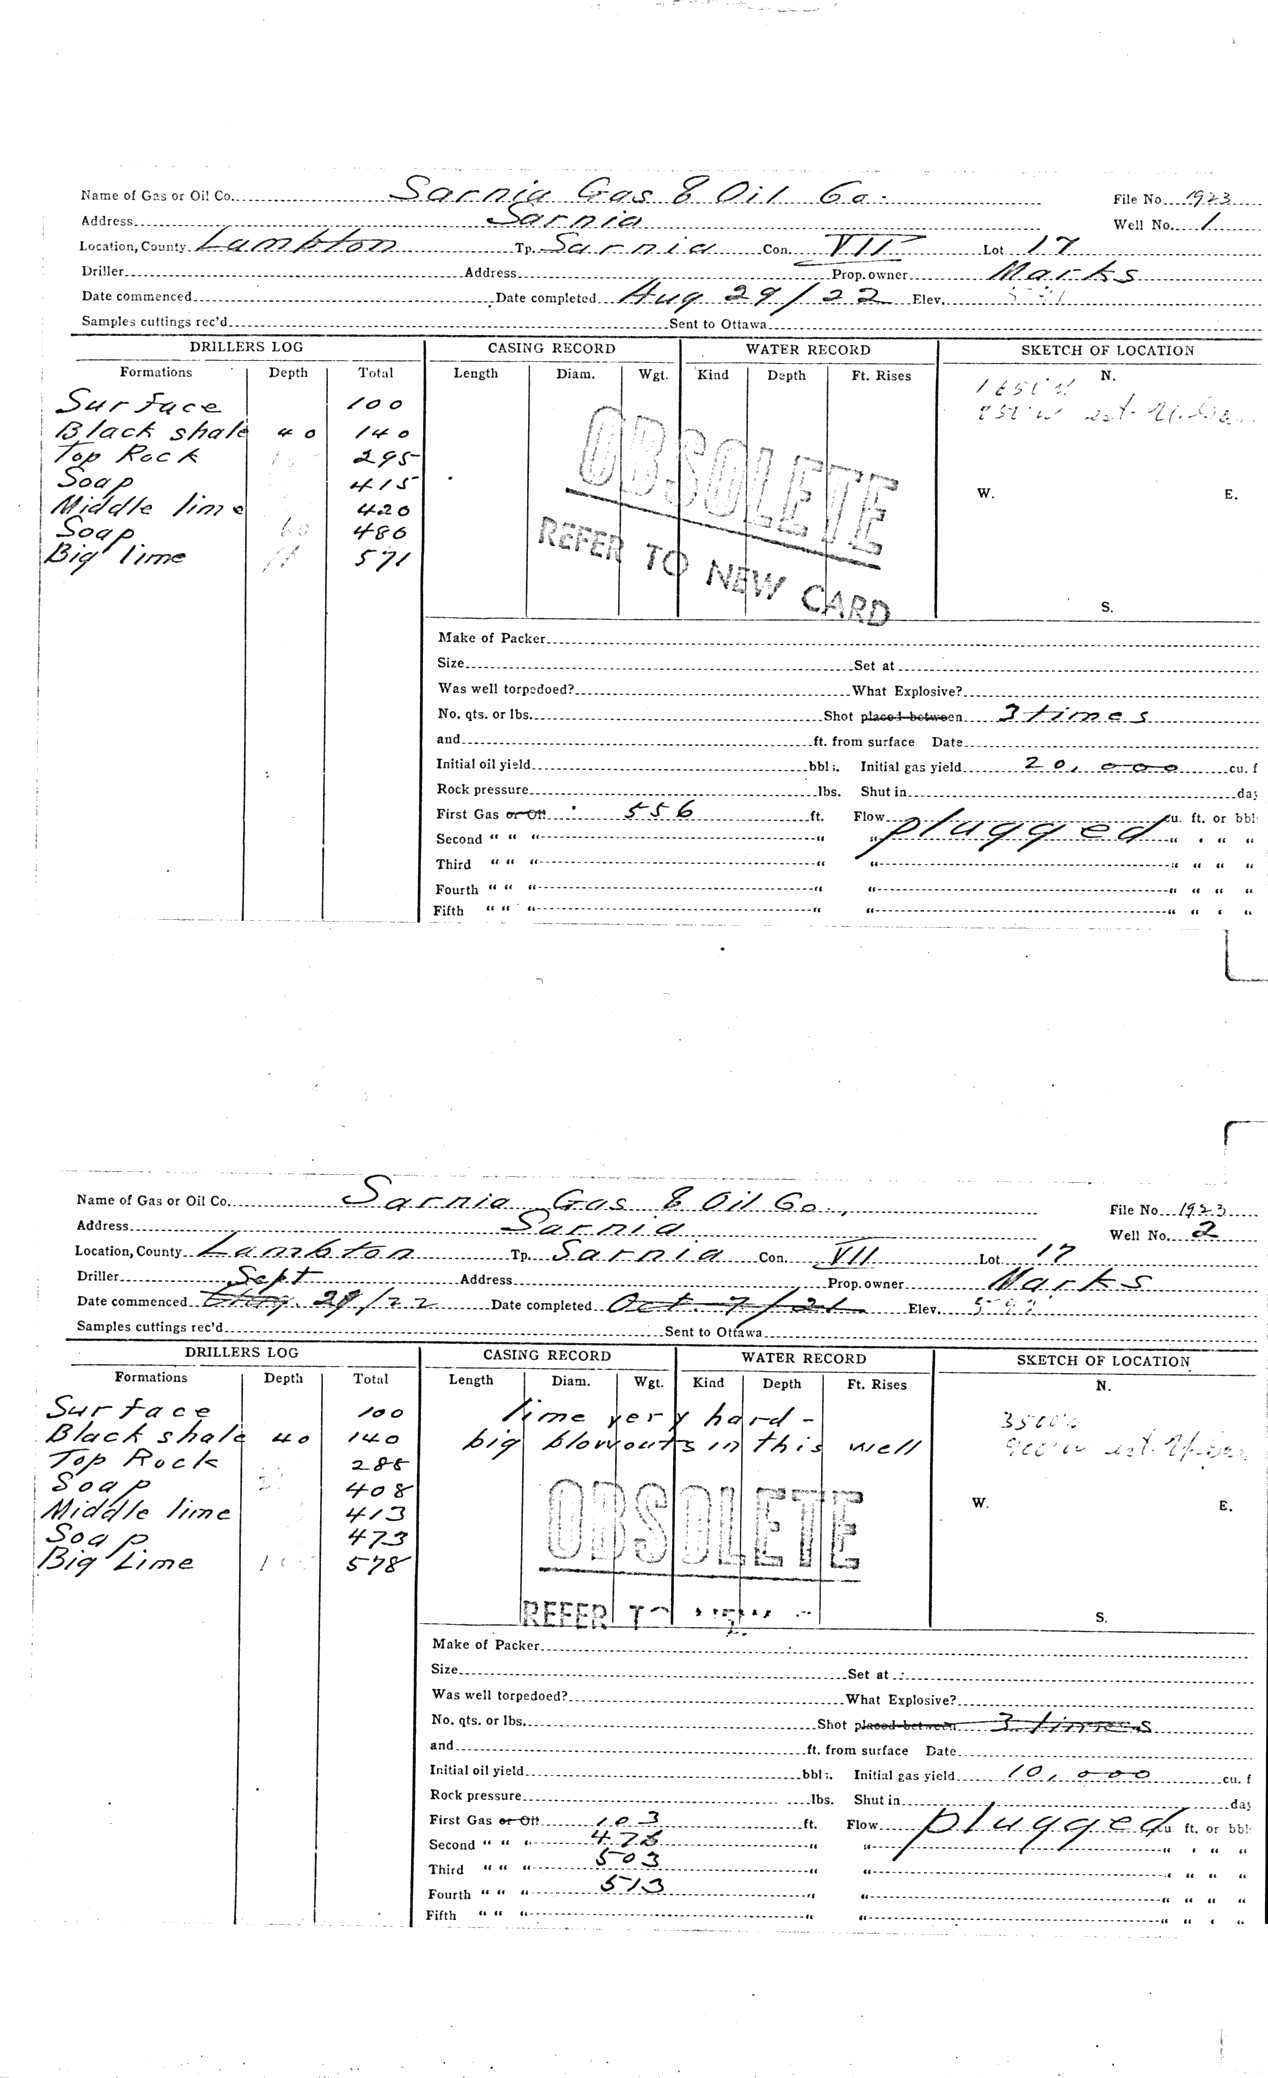 Name of Gas or Oil Co. Sarnia Gas & Oil Co. File No. 1923
Address Sarnia Well No. 1
Location, County Lambton Tp. Sarnia Con. VII Lot 17
Driller Address Prop. owner Marks
Date commenced Date completed Aug 29/22 Elev.
Samples cuttings rec'd Sent to Ottawa
DRILLERS LOG CASING RECORD WATER RECORD SKETCH OF LOCATION
Formations Depth Total Length Diam. Wgt. Kind Depth Ft. Rises N.
Surface 100
Black shale 40 140
Top Rock 295
Soap 415
Middle lime 420
Soap 60 486
Big lime 571
W. E.
OBSOLETE
REFER TO NEW CARD
S.
Make of Packer
Size Set at
Was well torpedoed? What Explosive?
No. qts. or lbs. Shot placed between 3 times
and ft. from surface Date
Initial oil yield bbls. Initial gas yield 20,000 cu. f
Rock pressure lbs. Shut in day
First Gas or Oil 556 ft. Flow plugged cu. ft. or bbl
Second " " " " " " " "
Third " " " " " " " "
Fourth " " " " " " " "
Fifth " " " " " " " "
Name of Gas or Oil Co. Sarnia Gas & Oil Co., File No. 1923
Address Sarnia Well No. 2
Location, County Lambton Tp. Sarnia Con. VII Lot 17
Driller Sept Address Prop. owner Marks
Date commenced 29/22 Date completed Oct. 7/21 Elev.
Samples cuttings rec'd Sent to Ottawa
DRILLERS LOG CASING RECORD WATER RECORD SKETCH OF LOCATION
Formations Depth Total Length Diam. Wgt. Kind Depth Ft. Rises N.
Surface 100 lime very hard -
Black shale 40 140 big blowouts in this well
Top Rock 288
Soap 408
Middle lime 413
Soap 473
Big Lime 578
W. E.
OBSOLETE
REFER TO NEW
S.
Make of Packer
Size Set at
Was well torpedoed? What Explosive?
No. qts. or lbs. Shot placed between 3 times
and ft. from surface Date
Initial oil yield bbls. Initial gas yield 10,000 cu. f
Rock pressure lbs. Shut in day
First Gas or Oil 103 ft. Flow plugged cu. ft. or bbl
Second " " " 478 " " " " "
Third " " " 503 " " " " "
Fourth " " " 513 " " " " "
Fifth " " " " " " " "